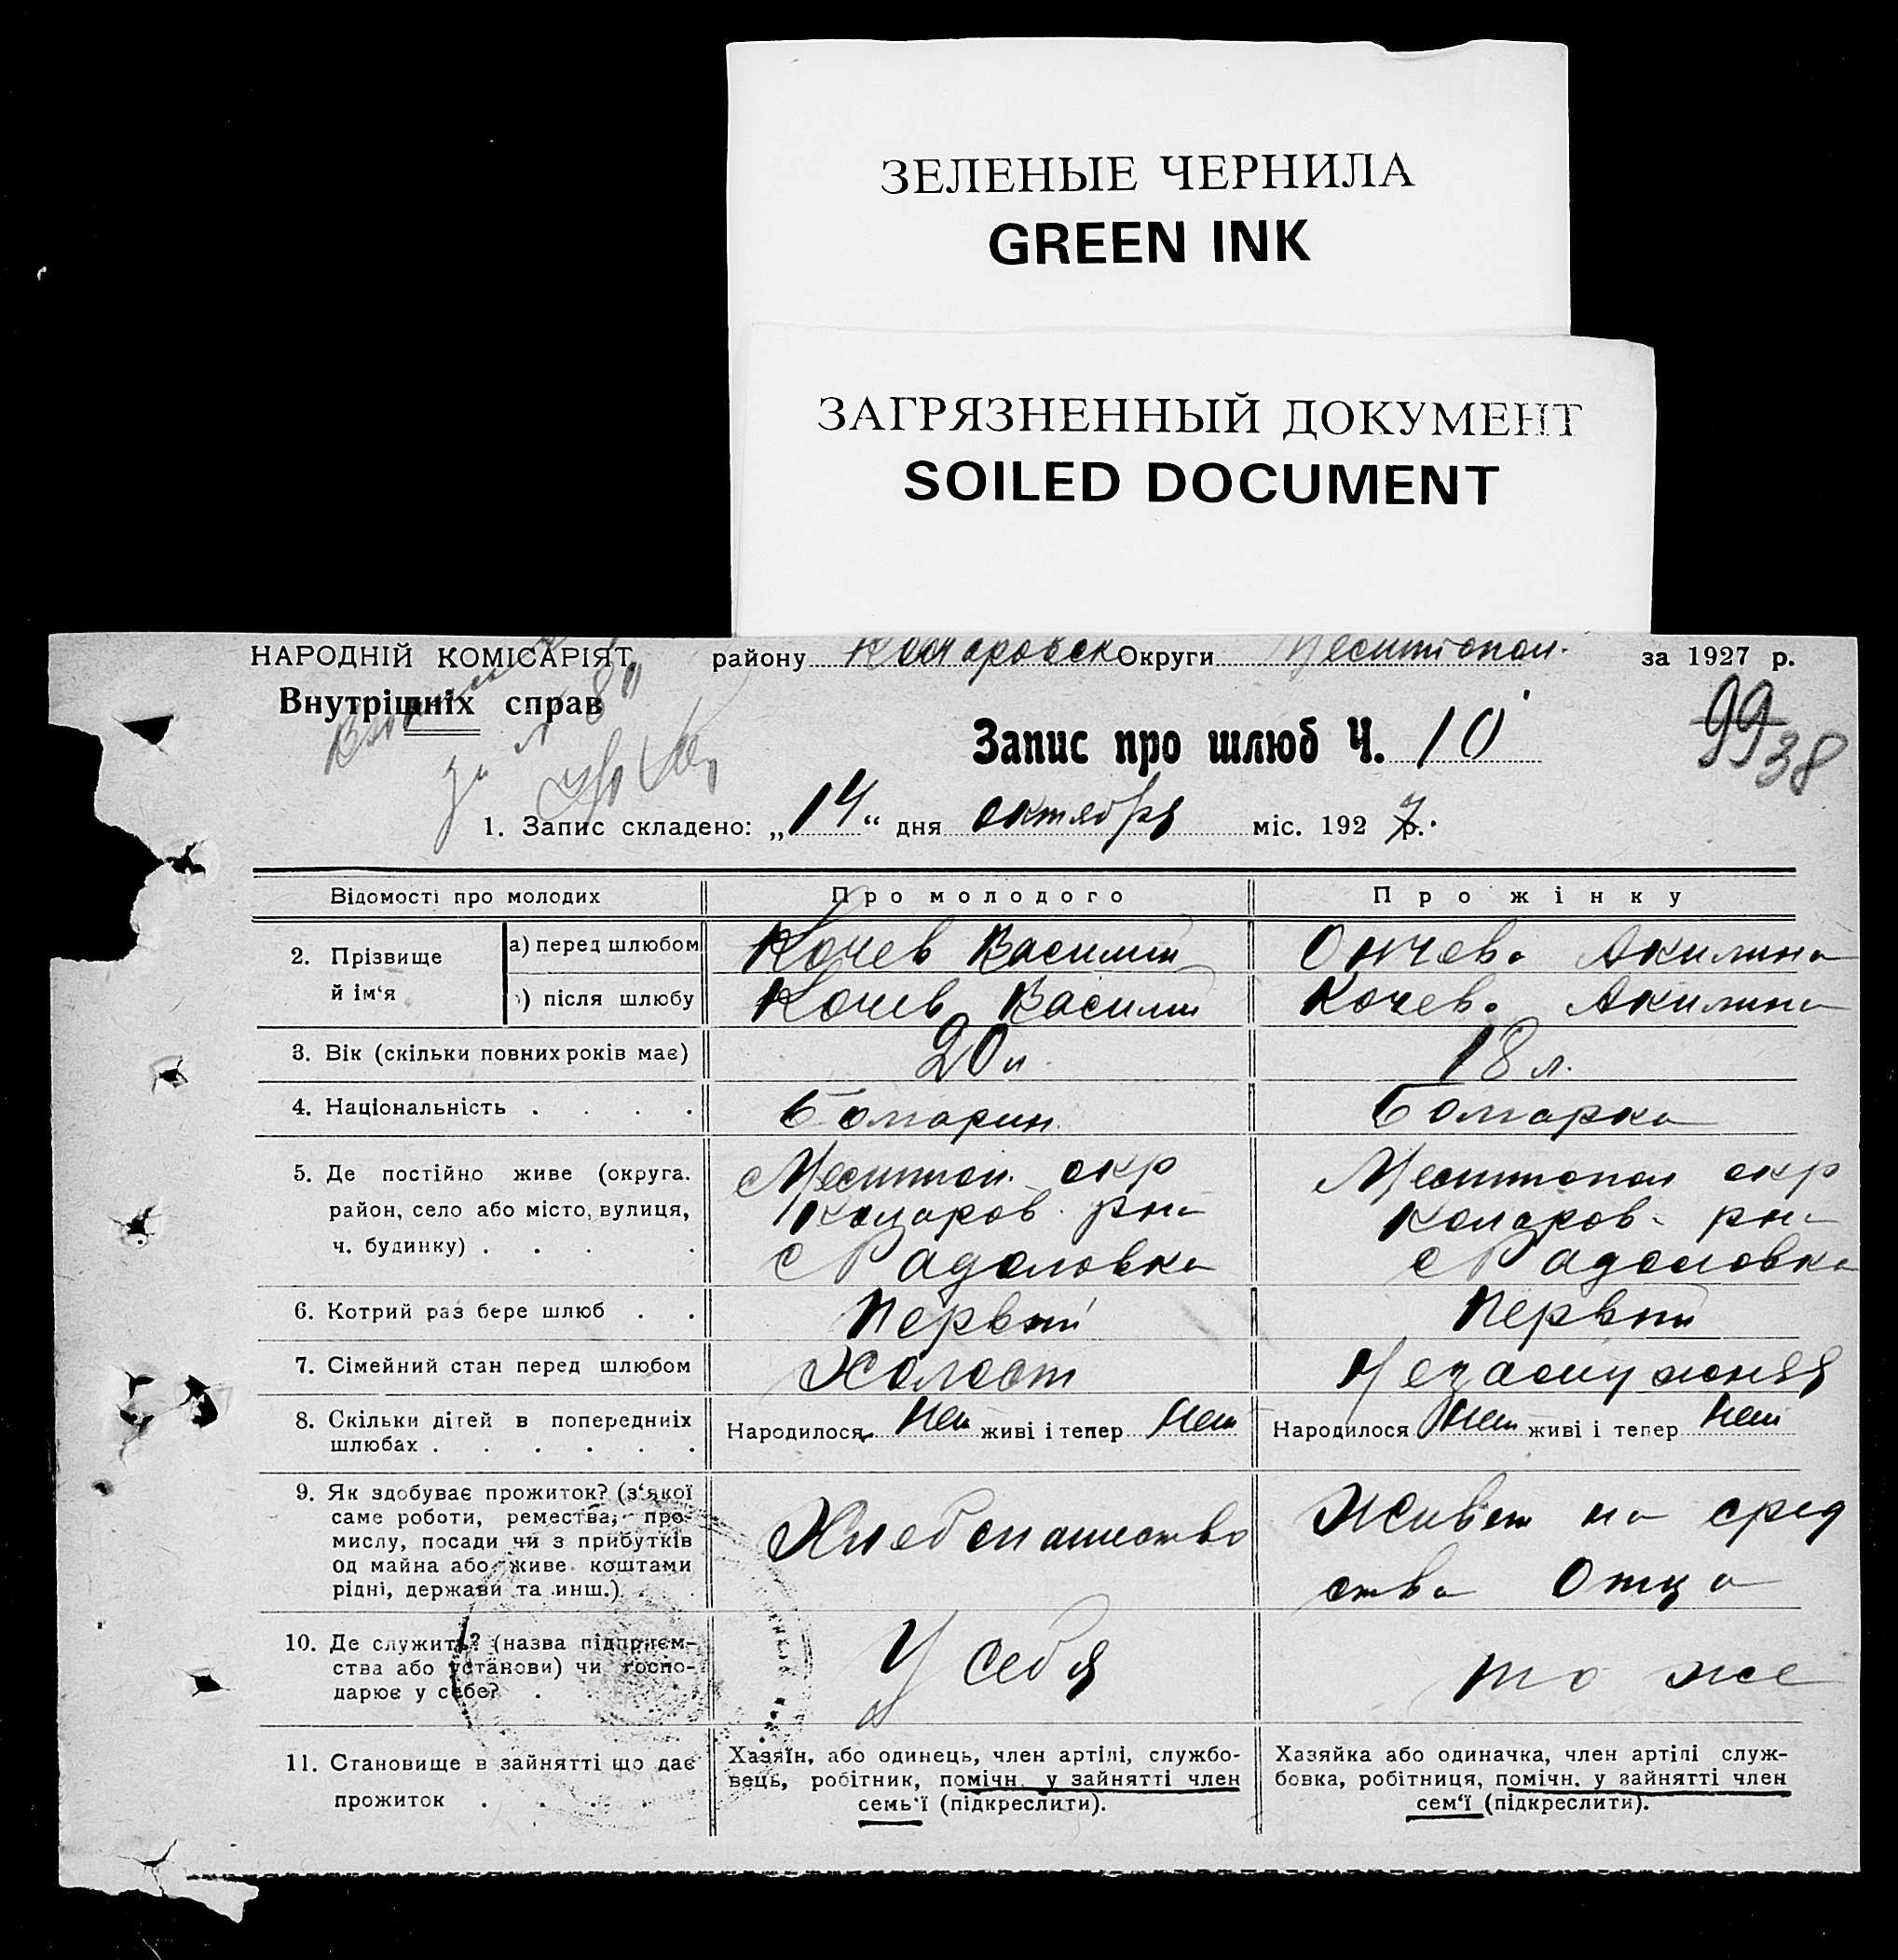 ЗЕЛЕНЫЕ ЧЕРНИЛА
GREEN INK
ЗАГРЯЗНЕННЫЙ ДОКУМЕНТ
SOILED DOCUMENT
НАРОДНІЙ КОМІСАРІЯТ району Коларовск Округи Мелитопол. за 1927 р.
Внутрішніх справ
Запис про шлюб Ч. 10
99
38
1. Запис складено: „14“ дня октября міс. 1927 р.
Відомості про молодих Про молодого Про жінку
2. Прізвище й ім‘я
а) перед шлюбом Кочев Василий Ончева Акилина
після шлюбу Кочев Василий Кочева Акилина
3. Вік (скільки повних років має) 20 л 18 л.
4. Національність . . . . Болгарин Болгарка
5. Де постійно живе (округа. Мелитоп. окр Мелитопол окр
район, село або місто, вулиця, Коларов. рна Коларов. рна
ч. будинку) . . . . с Радоловка с Радоловка
6. Котрий раз бере шлюб . . Первый Первый
7. Сімейний стан перед шлюбом Холост Незамужняя
8. Скільки дітей в попередніх Народилося нет живі і тепер нет Народилося нет живі і тепер нет
шлюбах . . . . . .
9. Як здобуває прожиток? (з‘якої
саме роботи, ремества, про-
мислу, посади чи з прибутків
од майна або живе коштами
рідні, держави та инш.) . .
Хлебопашество
Живет на сред
ства Отца
10. Де служить? (назва підприєм-
ства або установи) чи госпо-
дарює у себе? .
У себя
то же
11. Становище в зайнятті що дає
прожиток . . . .
Хазяїн, або одинець, член артілі, службо-
вець, робітник, помічн. у зайнятті член
семь‘ї (підкреслити).
Хазяйка або одиначка, член артілі служ-
бовка, робітниця, помічн. у зайнятті член
сем‘ї (підкреслити).